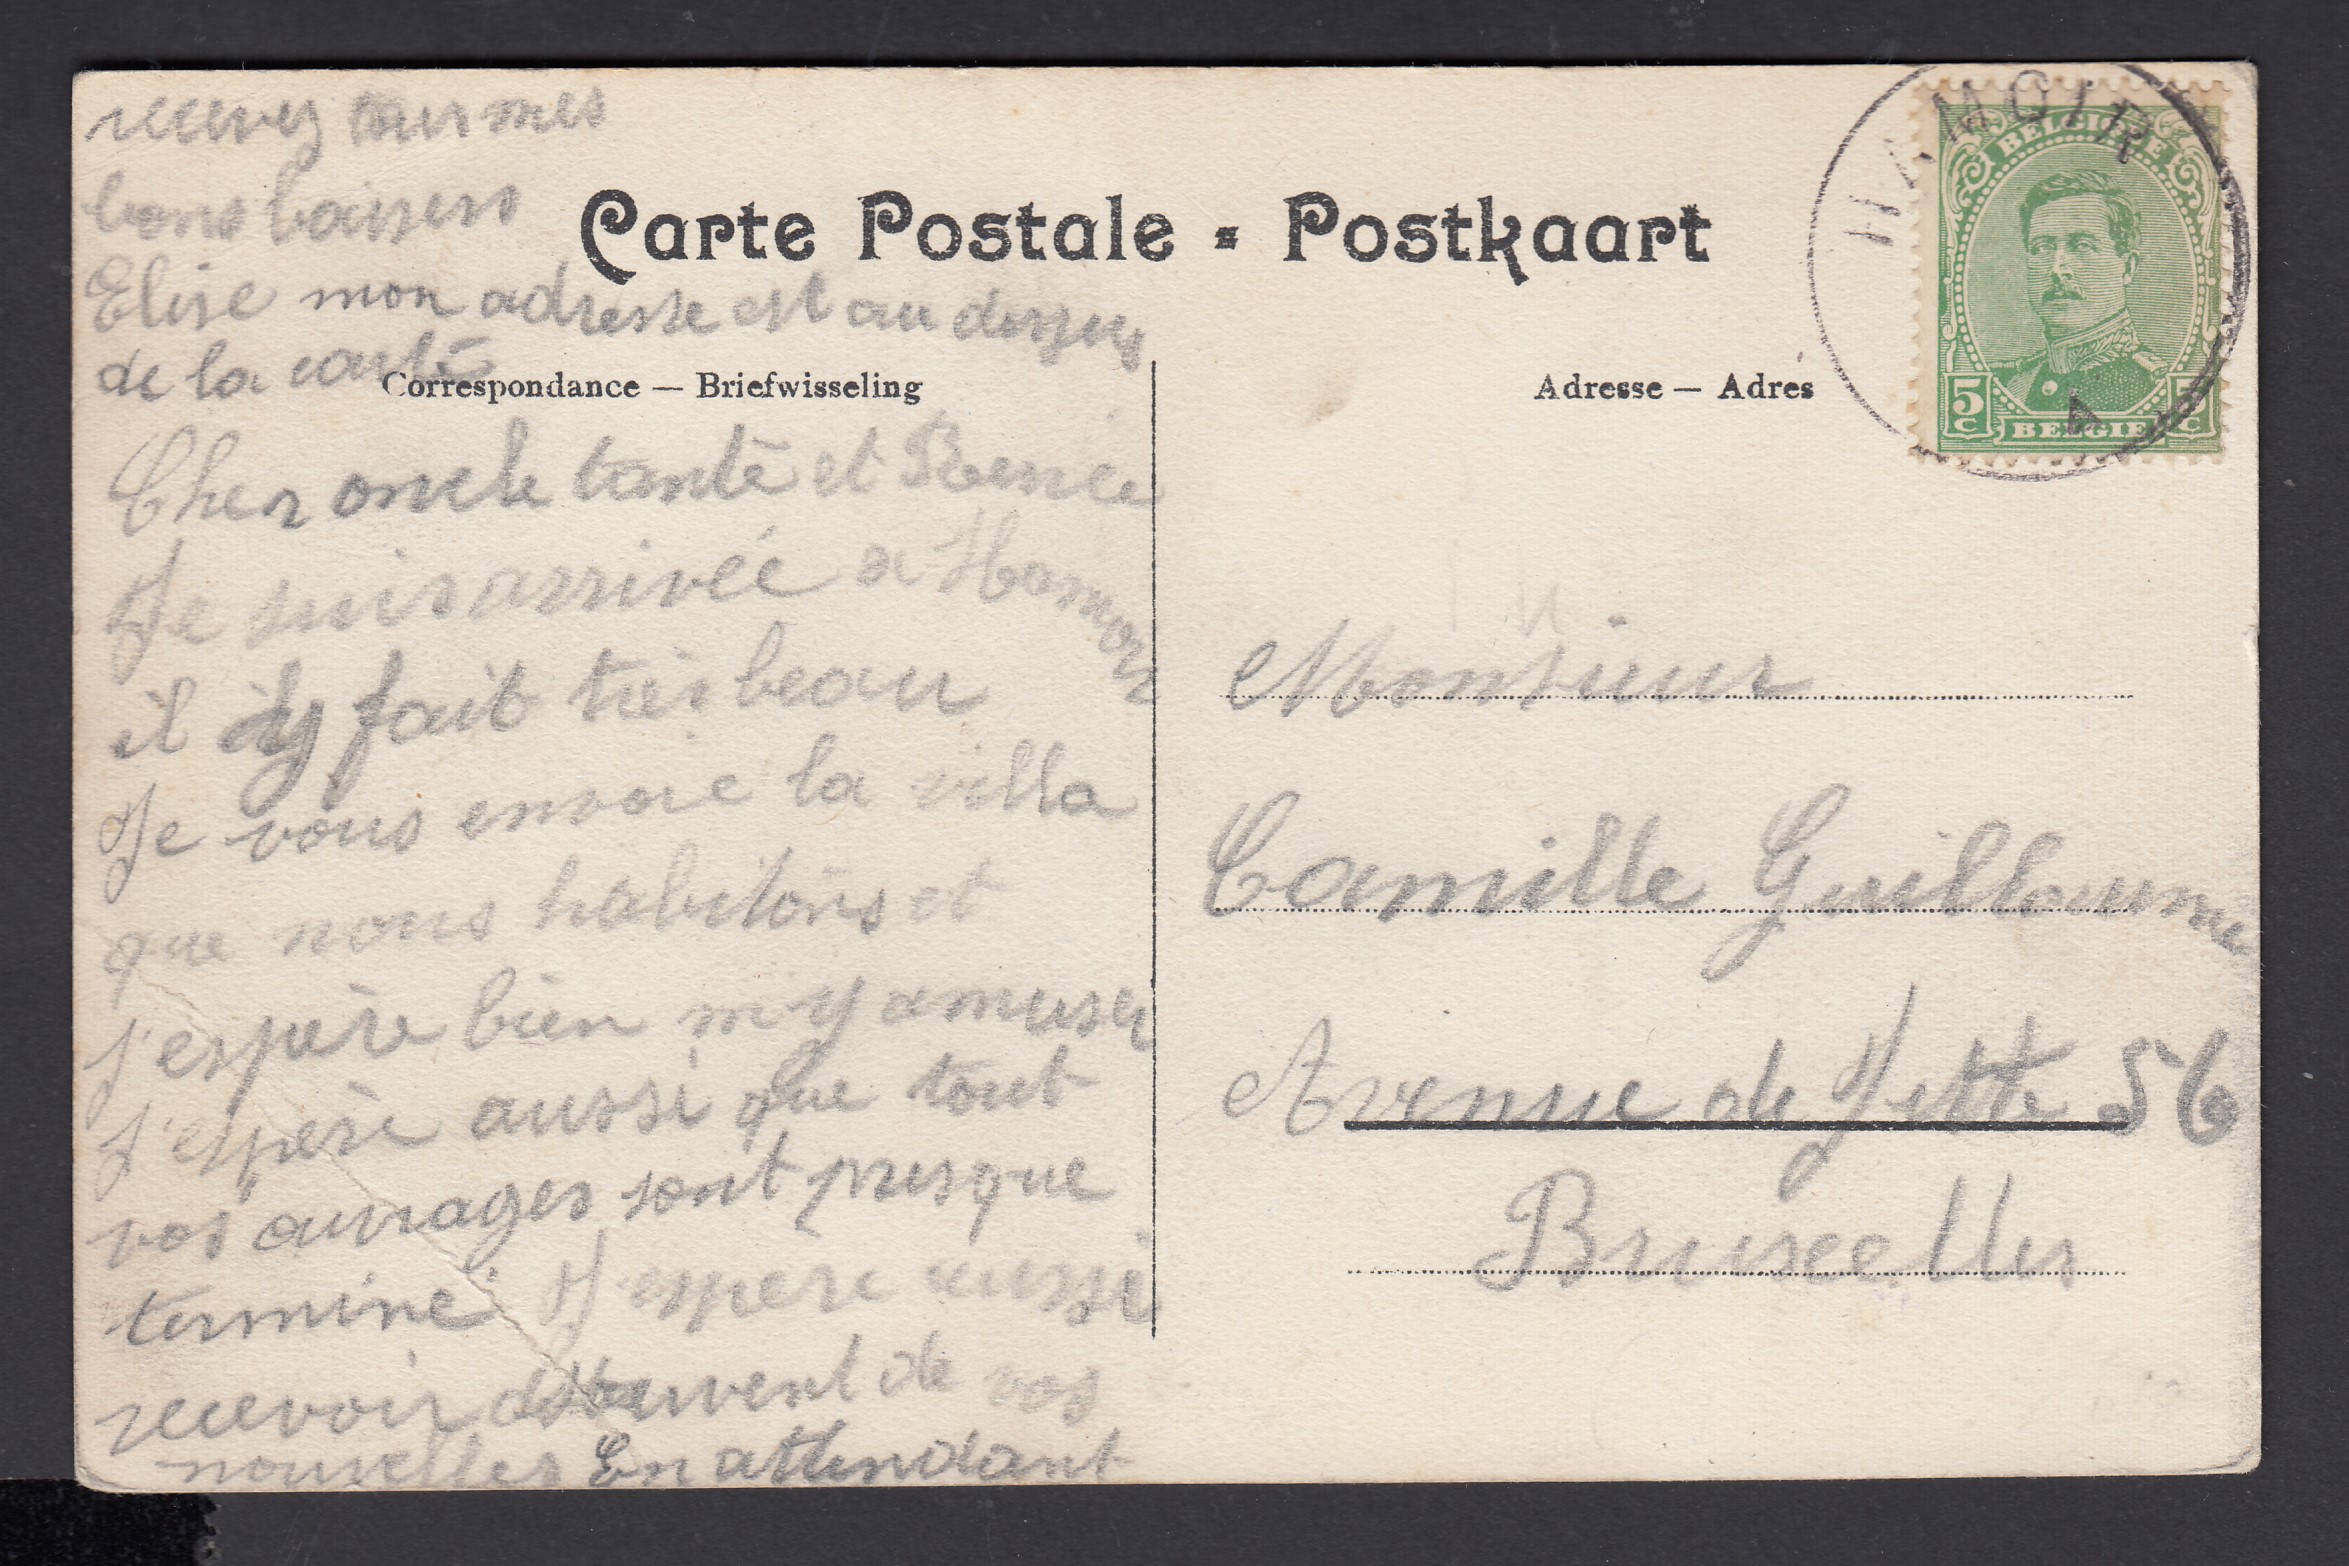 recevez tous mes
bons baisers
Elise mon adresse est au dessus
de la carte
Carte Postale - Postkaart
Correspondance — Briefwisseling
Cher oncle tante et Renée
Je suis arrivée a Hamoir
il y fait très beau
Je vous envoie la villa
que nous habitons et
j'espère bien m'y amuser
J'espère aussi que tout
vos ouvrages sont presque
terminé J'espère aussi
recevoir souvent de vos
nouvelles En attendant
HAMOIR
A
BELGIQUE
5 C
BELGIE
5 C
Adresse — Adres
Monsieur
Camille Guillaume
Avenue de Jette 56
Bruxelles